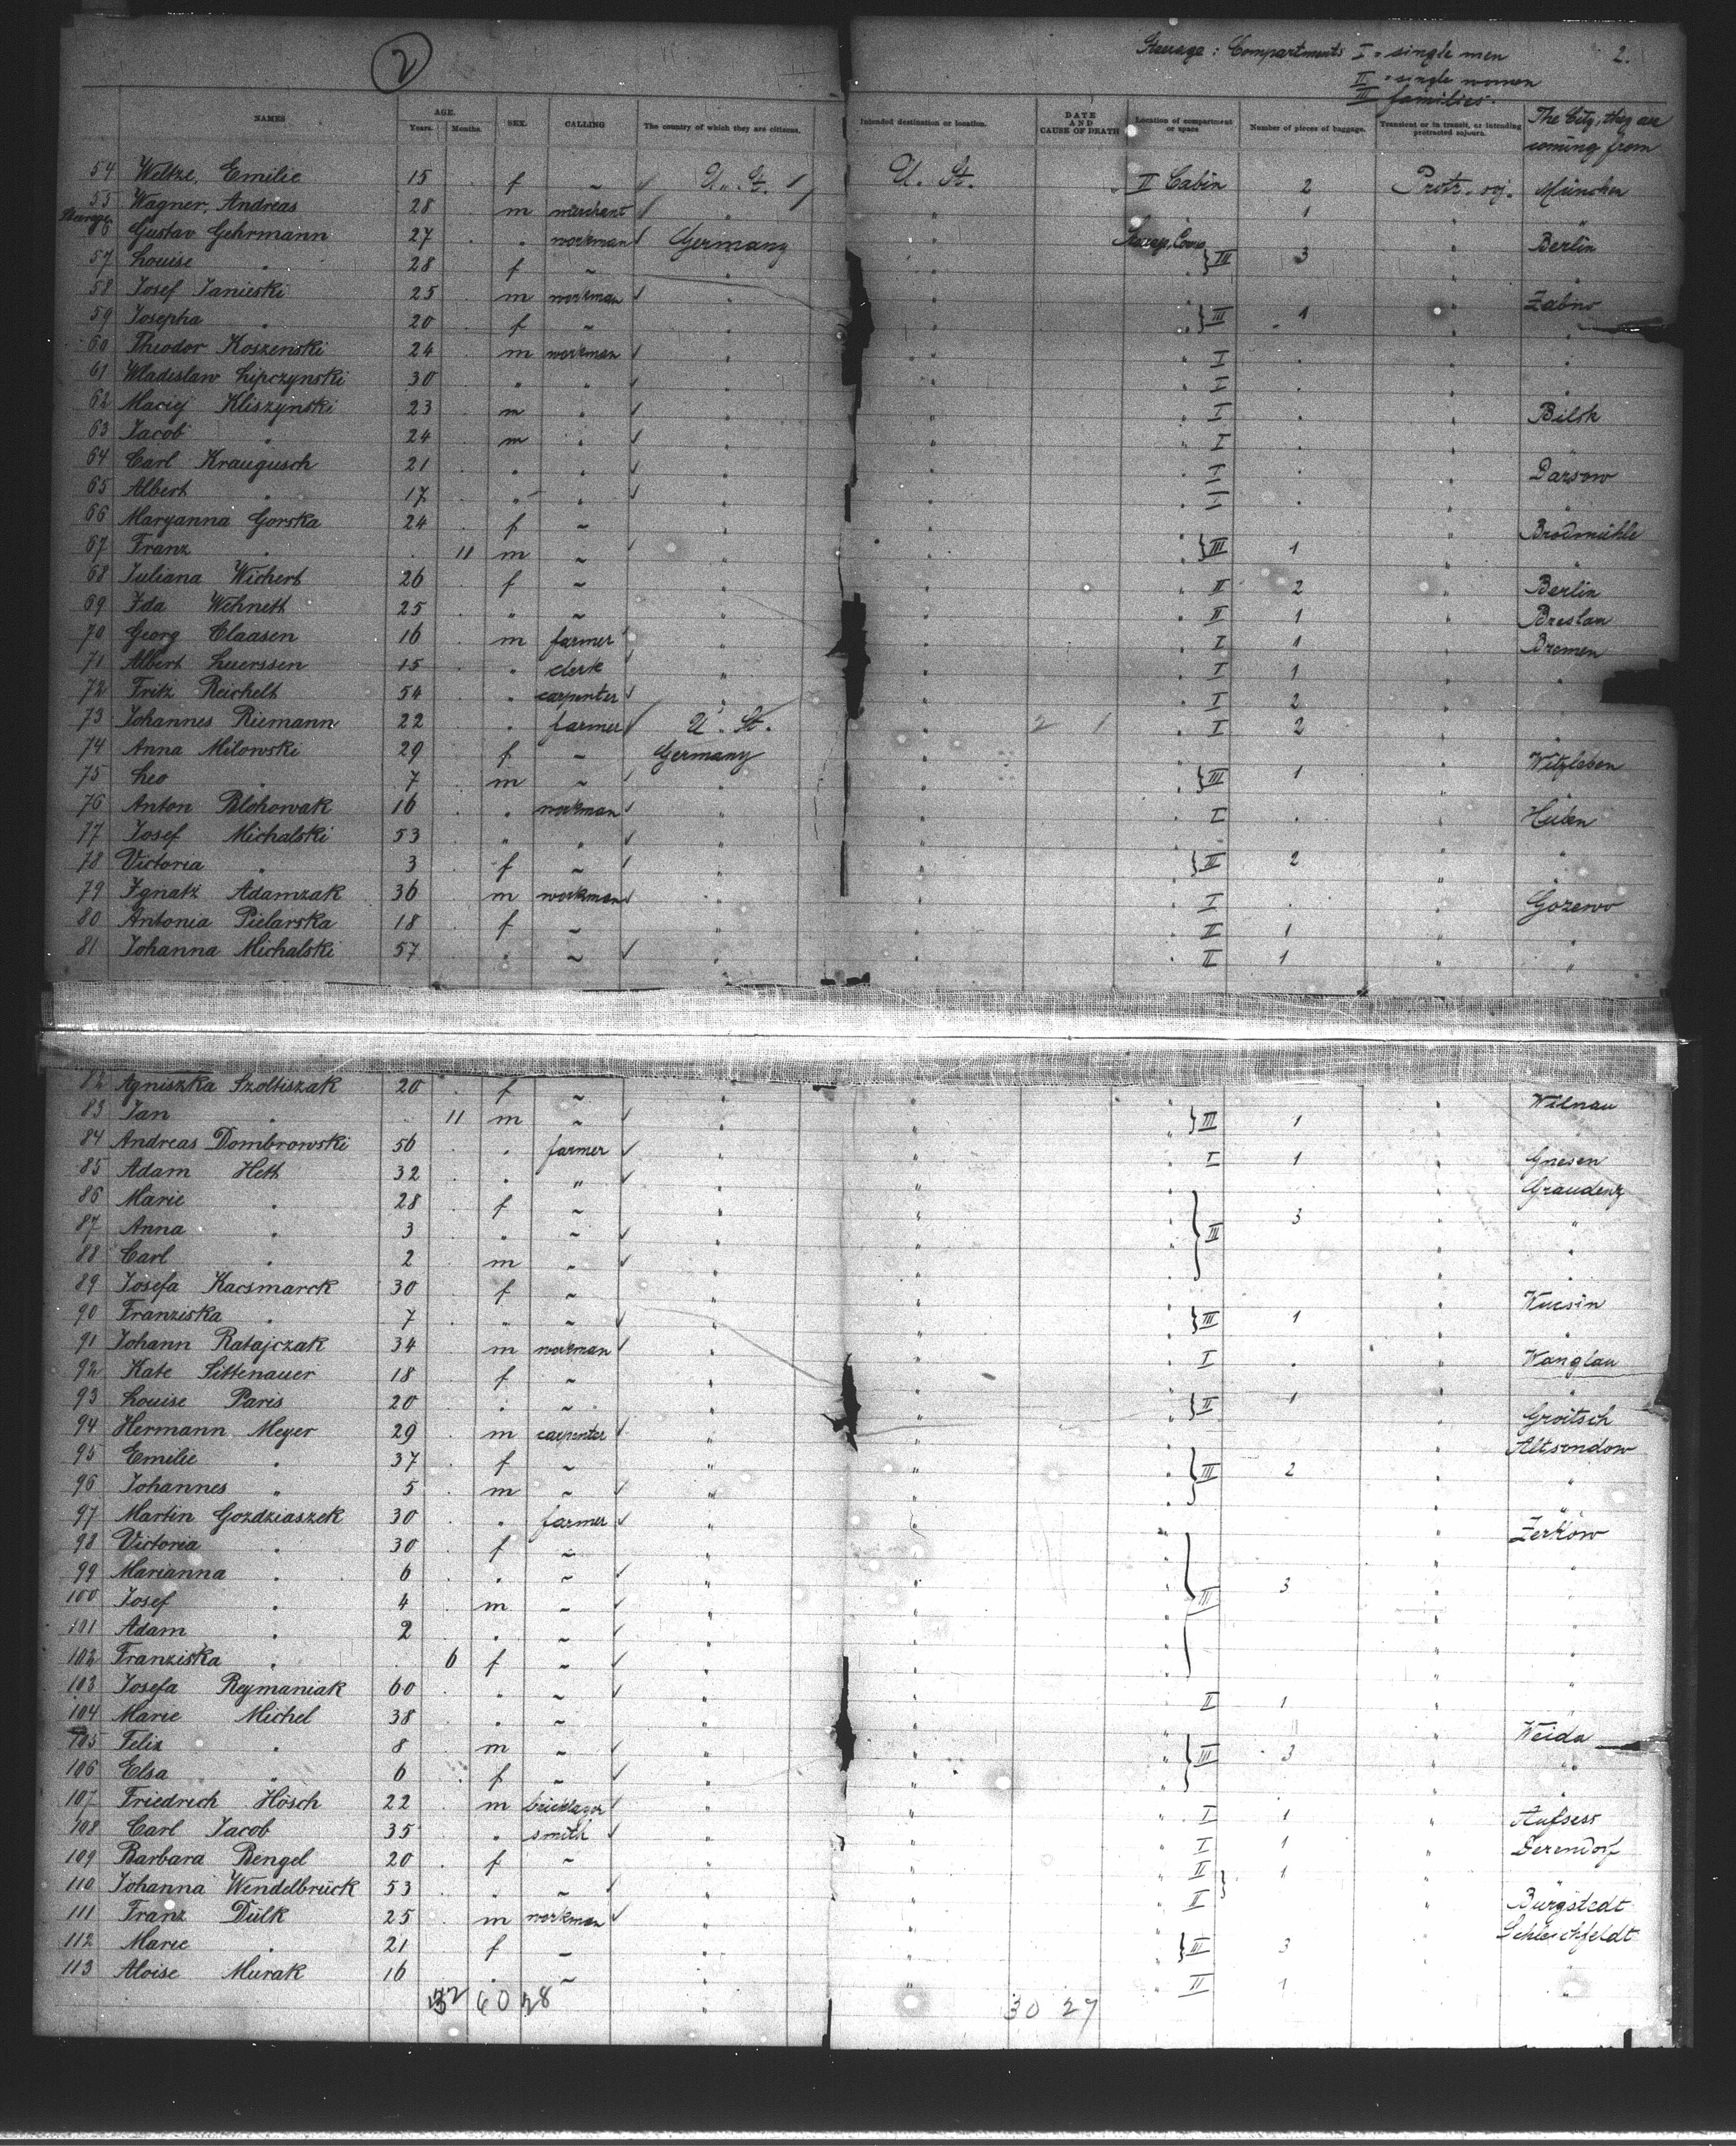 2
Steerage: Compartments I = single men
2.
II = single women
III families.
NAMES AGE. Years. Months. SEX. CALLING The country of which they are citizens. Intended destination or location. DATE AND CAUSE OF DEATH Location of compartment or space. Number of pieces of baggage. Transient or in transit, or intending protracted sojourn. The City, they are coming from
54 Weltze, Emilie 15 f ~ U. St. U. St. II Cabin 2 Protr. soj. München
55 Wagner, Andreas 28 m merchant " " 1 " "
Steerage
56 Gustav Gehrmann 27 " workman Germany " Steerage, Comp. " Berlin
57 Louise " 28 f ~ " " } III 3 " "
58 Josef Janieski 25 m workman " " " Zabno
59 Josepha " 20 f ~ " " } III 1 " "
60 Theodor Koszenski 24 m workman " " I . " "
61 Wladislaw Lipczynski 30 " " " " I . " "
62 Maciej Kliszynski 23 m " " " I . " Bilsk
63 Jacob " 24 m " " " I . " "
64 Carl Kraugusch 21 " " " " I . " Darsow
65 Albert " 17 " " " " I . " "
66 Maryanna Gorska 24 f ~ " " " Brodmühle
67 Franz " 11 m ~ " " } III 1 " "
68 Juliana Wichert 26 f ~ " " II 2 " Berlin
69 Ida Wehnelt 25 " ~ " " II 1 " Breslau
70 Georg Claasen 16 m farmer " " I 1 " Bremen
71 Albert Luerssen 15 " clerk " " I 1 " "
72 Fritz Reichelt 54 " carpenter " " I 2 "
73 Johannes Riemann 22 " farmer U. St. " 2 1 I 2 " "
74 Anna Milowski 29 f ~ Germany " " Witzleben
75 Leo " 7 m ~ " " } III 1 " "
76 Anton Blohowak 16 " workman " " I . " Huben
77 Josef Michalski 53 " " " " " "
78 Victoria " 3 f ~ " " } III 2 " "
79 Ignatz Adamzak 36 m workman " " I . " Gozewo
80 Antonia Pielarska 18 f ~ " " II 1 " "
81 Johanna Michalski 57 " ~ " " II 1 " "
82 Agniszka Szoltiszak 20 f ~ " " " Wilnau
83 Jan " 11 m ~ " " } III 1 " "
84 Andreas Dombrowski 56 " farmer " " I 1 " Gnesen
85 Adam Heth 32 " " " " " Graudenz
86 Marie " 28 f ~ " " 3 " "
87 Anna " 3 " ~ " " } III " "
88 Carl " 2 m ~ " " " "
89 Josefa Kacsmarck 30 f ~ " " " Kucsin
90 Franziska " 7 " ~ " " } III 1 " "
91 Johann Ratajczak 34 m workman " " I . " Wanglau
92 Kate Sittenauer 18 f ~ " " " "
93 Louise Paris 20 " ~ " " } II 1 " Groitsch
94 Hermann Meyer 29 m carpenter " " " Altsendow
95 Emilie " 37 f ~ " " } III 2 " "
96 Johannes " 5 m ~ " " " "
97 Martin Gozdziaszek 30 " farmer " " " Zerkow
98 Victoria " 30 f ~ " " " "
99 Marianna " 6 " ~ " " 3 " "
100 Josef " 4 m ~ " " } III " "
101 Adam " 2 " ~ " " " "
102 Franziska " 6 f ~ " " " "
103 Josefa Rejmaniak 60 " ~ " " II 1 " "
104 Marie Michel 38 " ~ " " " Weida
105 Felix " 8 m ~ " " } III 3 " "
106 Elsa " 6 f ~ " " " "
107 Friedrich Hösch 22 m bricklayer " " I 1 " Aufsess
108 Carl Jacob 35 " smith " " I 1 " Derendorf
109 Barbara Bengel 20 f ~ " " II 1 "
110 Johanna Wendelbrück 53 " ~ " " II } " Burgstedt
111 Franz Dülk 25 m workman " " " Schleichfeldt
112 Marie " 21 f ~ " " } III 3 " "
113 Aloise Murak 16 " ~ " " II 1 " "
32 60 28 30 27